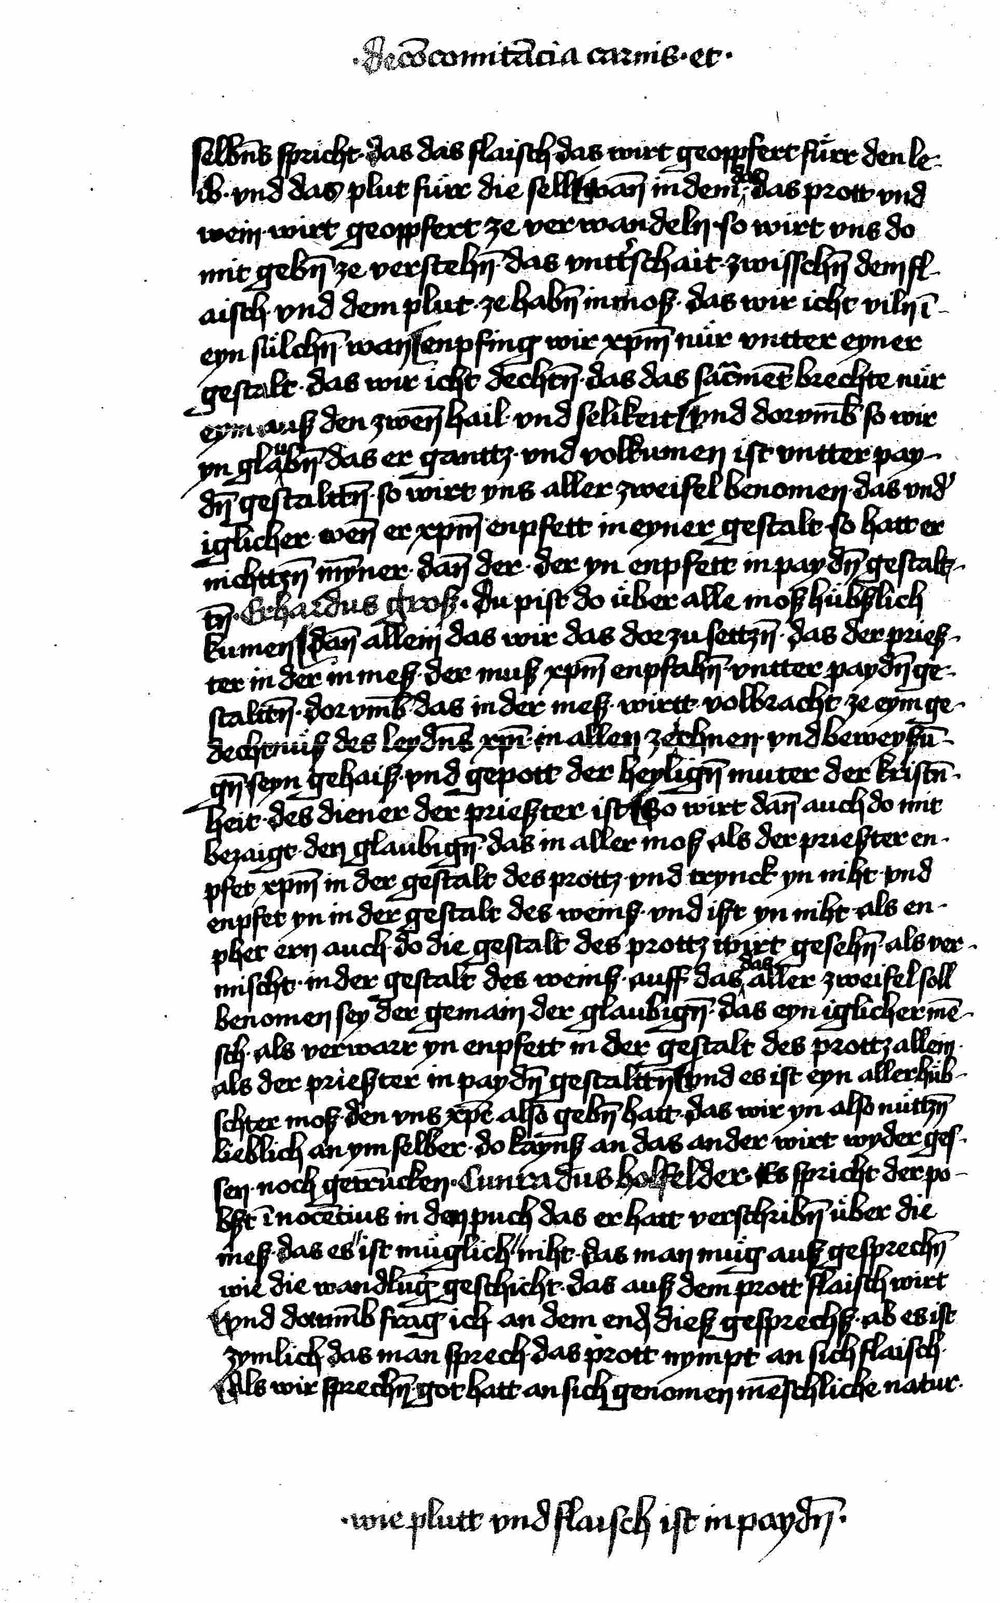 ·de cōcomitācia carnis·et·
selbn̄s spricht·das das flaisch das wirt geopfert fu̇r den le-
ib·vnd das plut fu̇r die sell wan̄ in dem das das prott vnd
wein·wirt geopfert ze verwandeln·so wirt vns do
mit gebn̄ ze verstehn̄·das vntt'schait·zwisschn̄ dem fl-
aisch vnd dem plut·ze habn̄ in moß·das wir icht viln̄ ī-
eyn su̇lchn̄ wan enpfing wir xp̄m nu̇r vntter eyner
gestalt·das wir icht dechtn̄·das das sac̄ment brechte nu̇r
eym auß den zwen̄ hail·vnd selikeit Vnd dorvmb̄ so wir
yn glaubn̄ das er ganttz·vnd volkumen ist vntter pay-
dn̄ gestalttn̄·so wirt vns aller zweifel benomen·das vnd'
iglicher·wen̄ er xp̄m enpfett in eyner gestalt·so hatt er
nichttzn̄ mȳner·dan̄ der·der yn enpfett in paydn̄ gestalt-
tn̄·Erhardus groß·du pist do u̇ber alle moß hu̇bschlich
kumen dan̄ allein das wir das dorzu settzn̄·das der prieß-
ter in der in meß·der muß xp̄m enpfahn̄·vntter paydn̄ ge-
stalttn̄·dorvmb̄ das in der meß·wirtt·volbracht·ze eym ge-
dechtnu̇ß des leydn̄s xp̄i·in allen zechnen·vnd beweyßū-
gn̄ seyn gehaiß·vnd gepott der heylign̄ muter der kristn̄-
heit·des diener der prießter ist So wirt dan̄ auch do mit
bezaigt·den glaubign̄·das in aller moß als der prießter en-
pfet xp̄m in der gestalt des prottz·vnd trynck yn niht·vnd
enpfet yn in der gestalt des weinß·vnd ißt yn niht·als en-
phet ern auch·do die gestalt des prottz wirt gesehn̄·als ver-
mischt·in der gestalt des weinß·auff das das aller zweifel soll
benomen sey der gemain der glaubign̄·das eyn iglicher mē-
sch·als verwarr yn enpfett in der gestalt des prottz allein·
als der prießter in paydn̄ gestalttn̄ Vnd es ist eyn aller hu̇b-
schter moß·den vns xp̄c also gebn̄ hatt·das wir yn also nu̇ttzn̄
lieblich an ym selber·do kaynß an das ander wirt wyder ges-
sen·noch getrūcken·Cunradus holfelder·Es spricht der po-
bßt īnocēcius in den puch das er hatt verschribn̄ u̇ber die
meß·das es ist mu̇glich niht·das man mu̇g auß gesprechn̄
wie die wandlūg geschicht·das auß dem prott flaisch wirt
Vnd dorumb̄ frag ich an dem end dieß gesprechß·ab es ist
zymlich·das man sprech·das prott nympt an sich flaisch·
Als wir sprechn̄·got hatt an sich genomen mēschliche natur·
·wie plutt vnd flaisch ist in paydn̄·